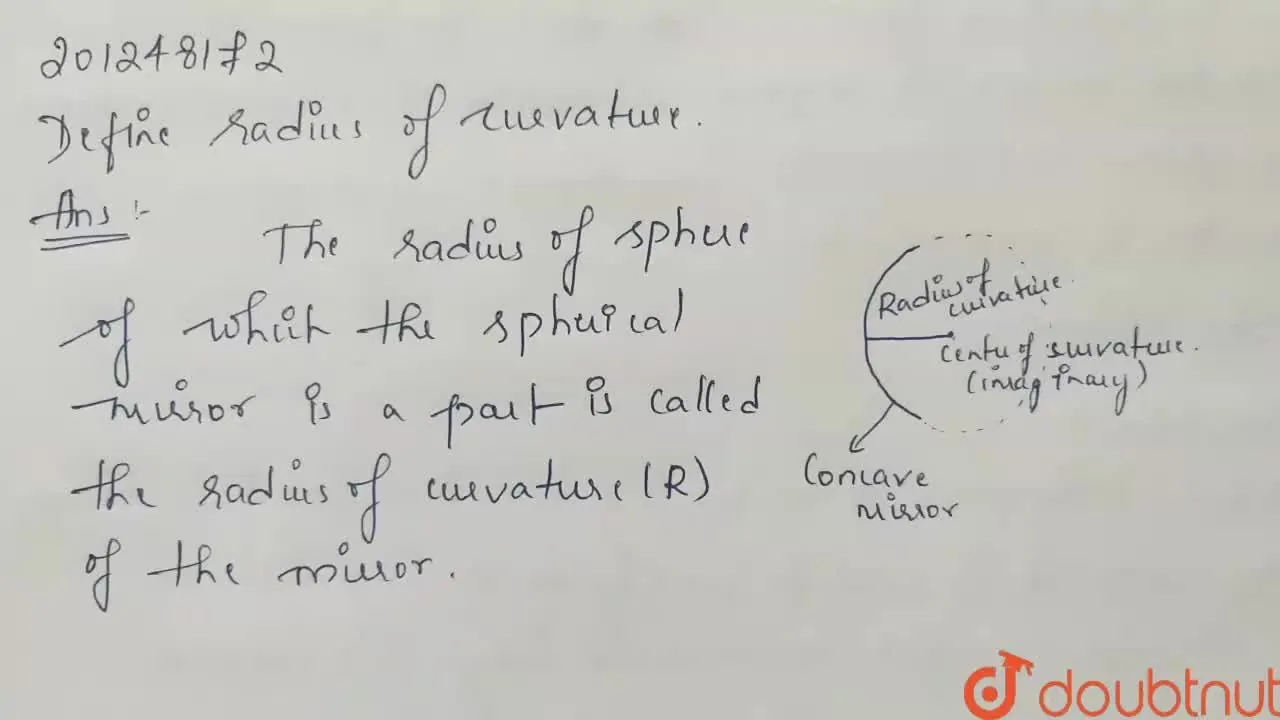 201248172
Define radius of curvature.
Ans :-
The radius of sphere
of which the spherical
mirror is a part is called
the radius of curvature (R)
of the mirror.
Radius of
curvature.
Centre of curvature.
(imaginary)
Concave
mirror
doubtnut